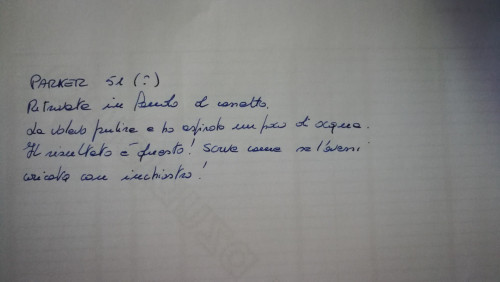 PARKER 51 (?)
Ritrovata in fondo al cassetto.
La volevo pulire e ho aspirato un poco d'acqua.
Il risultato è questo! Scrive come se l'avessi
caricata con inchiostro!